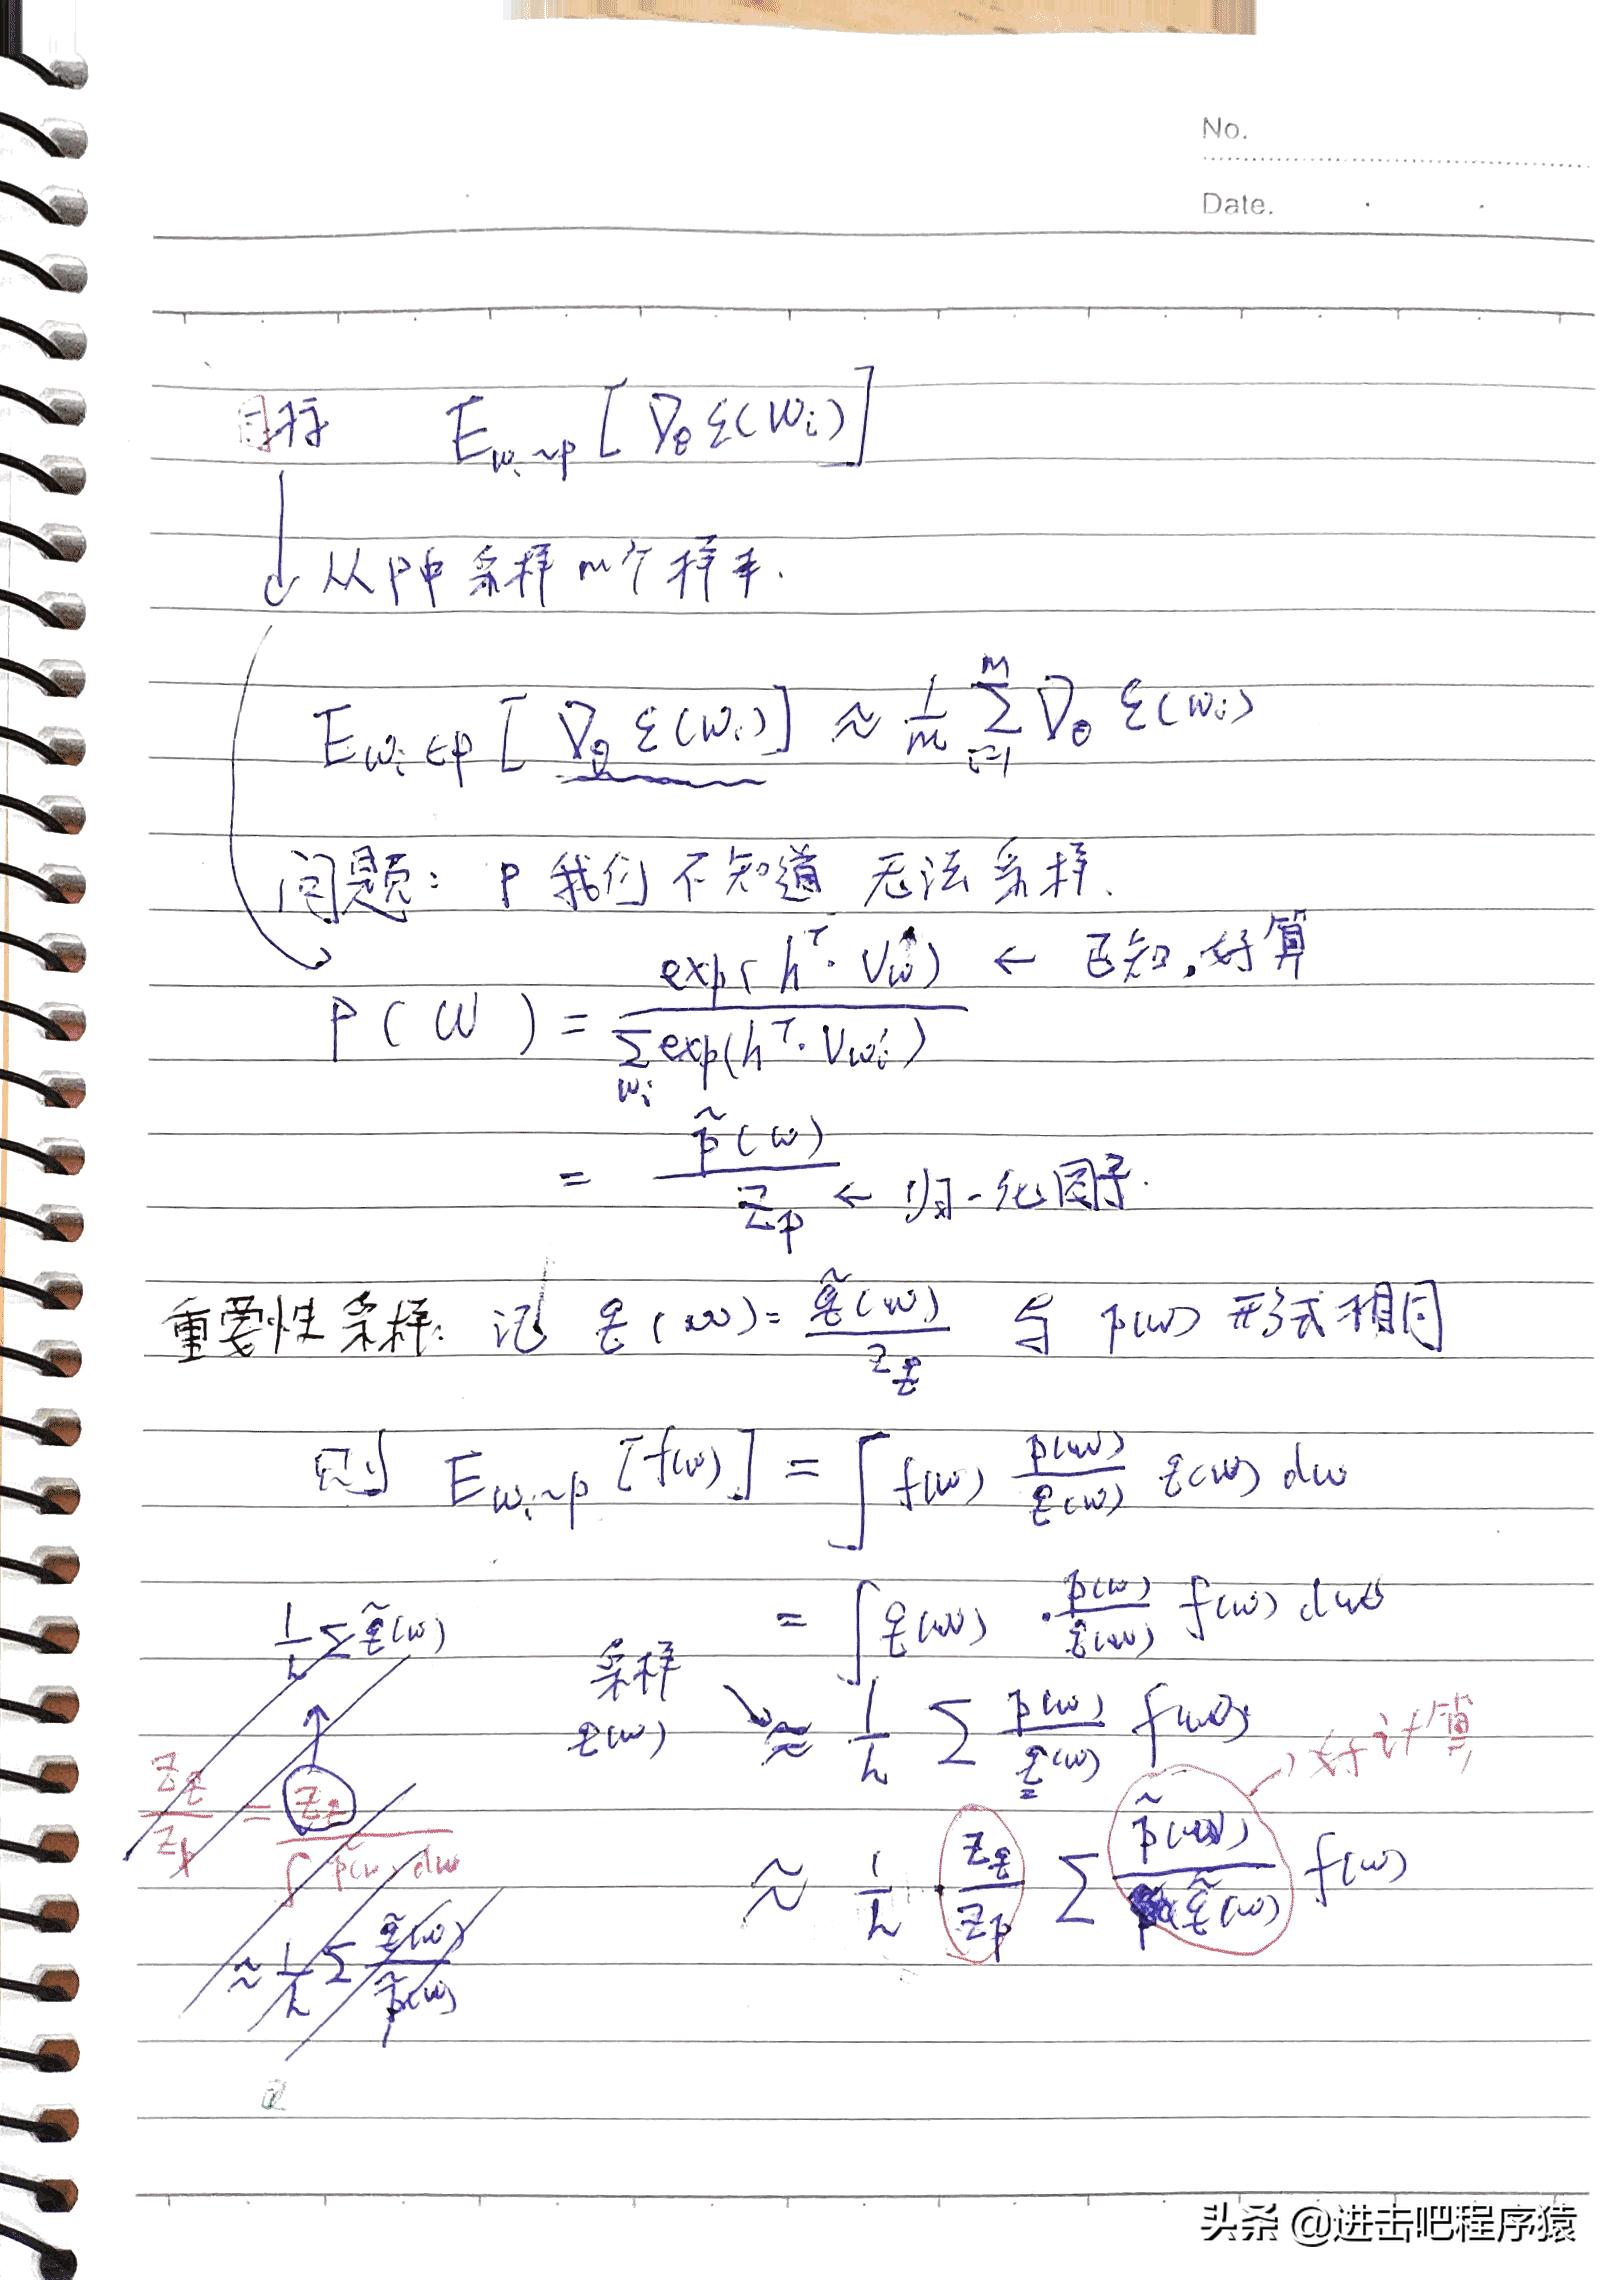 No.
Date.
目标 E_{w_i~p} [ ∇_θ ξ(w_i) ]
从 P 中 采样 m个 样本.
E_{w_i∈p} [ ∇_θ ξ(w_i) ] ≈ \frac{1}{m} \sum_{i=1}^{m} ∇_θ ξ(w_i)
问题: P 我们 不知道 无法 采样.
P(w) = \frac{exp(h^T · V_w)}{\sum_{w_i} exp(h^T · V_{w_i})} ← 已知,好算
= \frac{\tilde{p}(w)}{Z_p} ← 归一化因子.
重要性采样: 记 q(w) = \frac{\tilde{q}(w)}{Z_q} 与 p(w) 形式相同
则 E_{w_i~p} [f(w)] = ∫ f(w) \frac{p(w)}{q(w)} q(w) dw
= ∫ q(w) · \frac{p(w)}{q(w)} f(w) dw
采样 q(w) ≈ \frac{1}{n} ∑ \frac{p(w)}{q(w)} f(w)
≈ \frac{1}{n} · \frac{Z_q}{Z_p} ∑ \frac{\tilde{p}(w)}{\tilde{q}(w)} f(w)
好计算
\frac{1}{n} ∑ \tilde{q}(w)
\frac{Z_q}{Z_p} = \frac{Z_q}{∫ \tilde{p}(w) dw}
≈ \frac{1}{n} ∑ \frac{\tilde{q}(w)}{\tilde{p}(w)}
头条 @进击吧程序猿